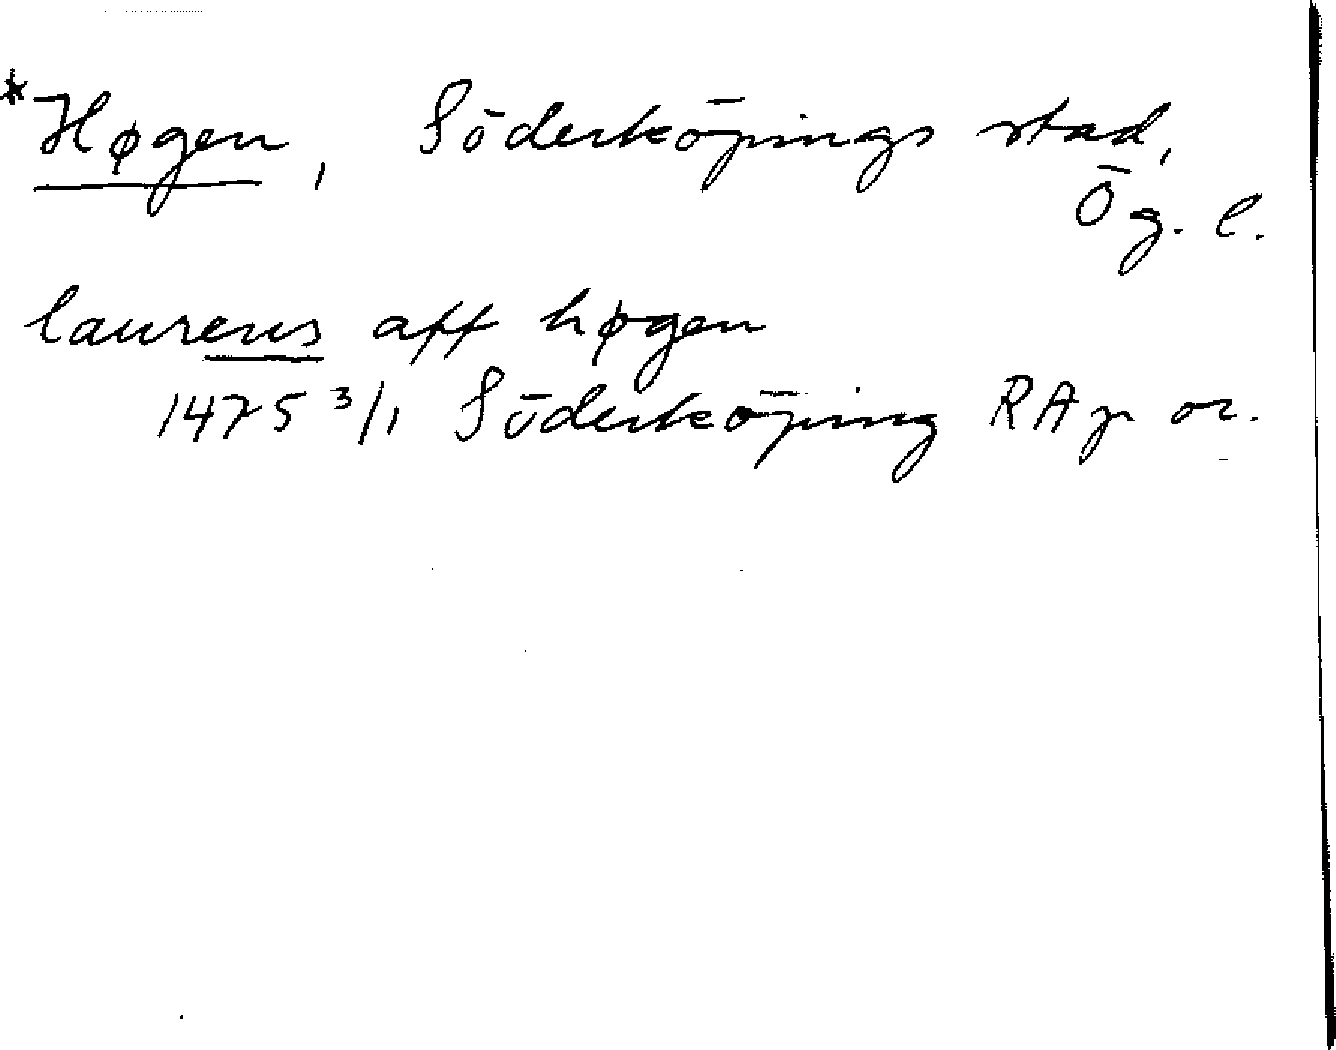 *Høgen, Söderköpings stad,
Ög. l.
laurens aff høgen
1475 3/1 Söderköping RAp or.